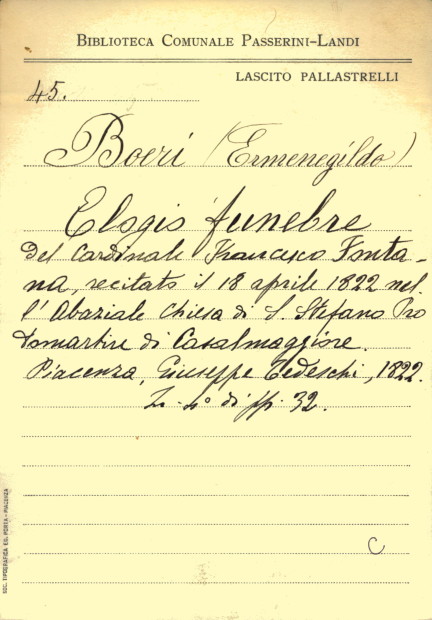 BIBLIOTECA COMUNALE PASSERINI-LANDI
LASCITO PALLASTRELLI
45.
Boeri (Ermenegildo)
Elogio funebre
del Cardinale Francesco Fonta-
na, recitato il 18 aprile 1822 nel-
l'Abaziale Chiesa di S. Stefano Pro
tomartire di Casalmaggiore.
Piacenza, Giuseppe Tedeschi, 1822.
In-4° di pp. 32.
C
SOC. TIPOGRAFICA ED. PORTA - PIACENZA